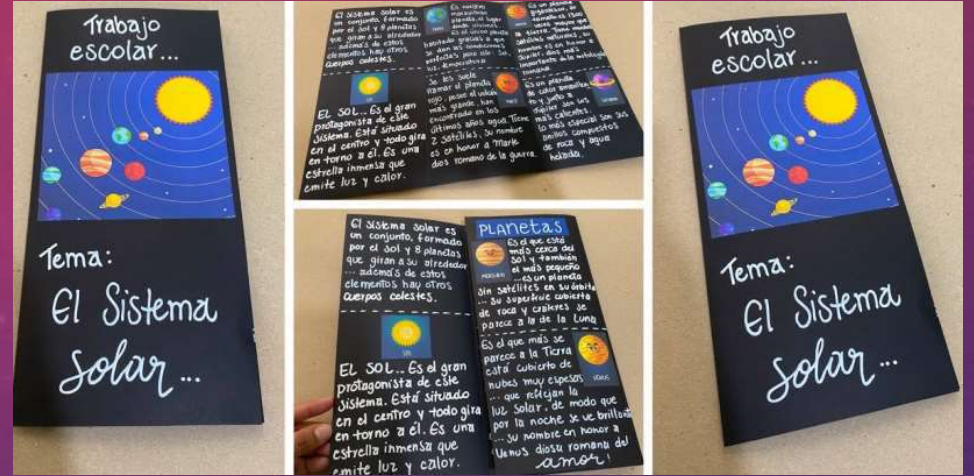 Trabajo
escolar...
Tema:
El Sistema
solar...
El Sistema solar es
un conjunto, formado
por el sol y 8 planetas
que giran a su alrededor
... además de estos
elementos hay otros
cuerpos celestes.
SOL
EL SOL... Es el gran
protagonista de este
sistema. Está situado
en el centro y todo gira
en torno a él. Es una
estrella inmensa que
emite luz y calor.
Es nuestro
planeta, el lugar
donde vivimos...
Es el único planeta
habitado gracias a que
se dan las condiciones
perfectas para ello: Sol
luz, temperatura
Se les suele
llamar el planeta
rojo, posee el volcán
más grande, han
encontrado en los
últimos años agua. Tiene
2 satélites, su nombre
es en honor a Marte
dios romano de la guerra.
MARTE
Es un planeta
tamaño es 1300
veces mayor que
la tierra. Tiene
satélites naturales, su
nombre es en honor a
dios más
importante de la mitología
romana.
Es un planeta
de color amarillen-
to y junto a
son los
más calientes
lo más especial son sus
anillos compuestos
de roca y agua
helada.
El Sistema Solar es
un conjunto, formado
por el sol y 8 planetas
que giran a su alrededor
... además de estos
elementos hay otros
cuerpos celestes.
SOL
EL SOL... Es el gran
protagonista de este
sistema. Está situado
en el centro y todo gira
en torno a él. Es una
estrella inmensa que
emite luz y calor.
PLANETAS
Es el que está
más cerca del
Sol y también
el más pequeño
... es un planeta
sin satélites en su órbita
... su superficie cubierta
de roca y cráteres se
parece a la de la Luna
MERCURIO
Es el que más se
parece a la Tierra
está cubierto de
nubes muy espesas
... que reflejan la
luz solar, de modo que
por la noche se ve brillante
... su nombre en honor a
Venus diosa romana del
amor!
VENUS
Trabajo
escolar...
Tema:
El Sistema
solar...